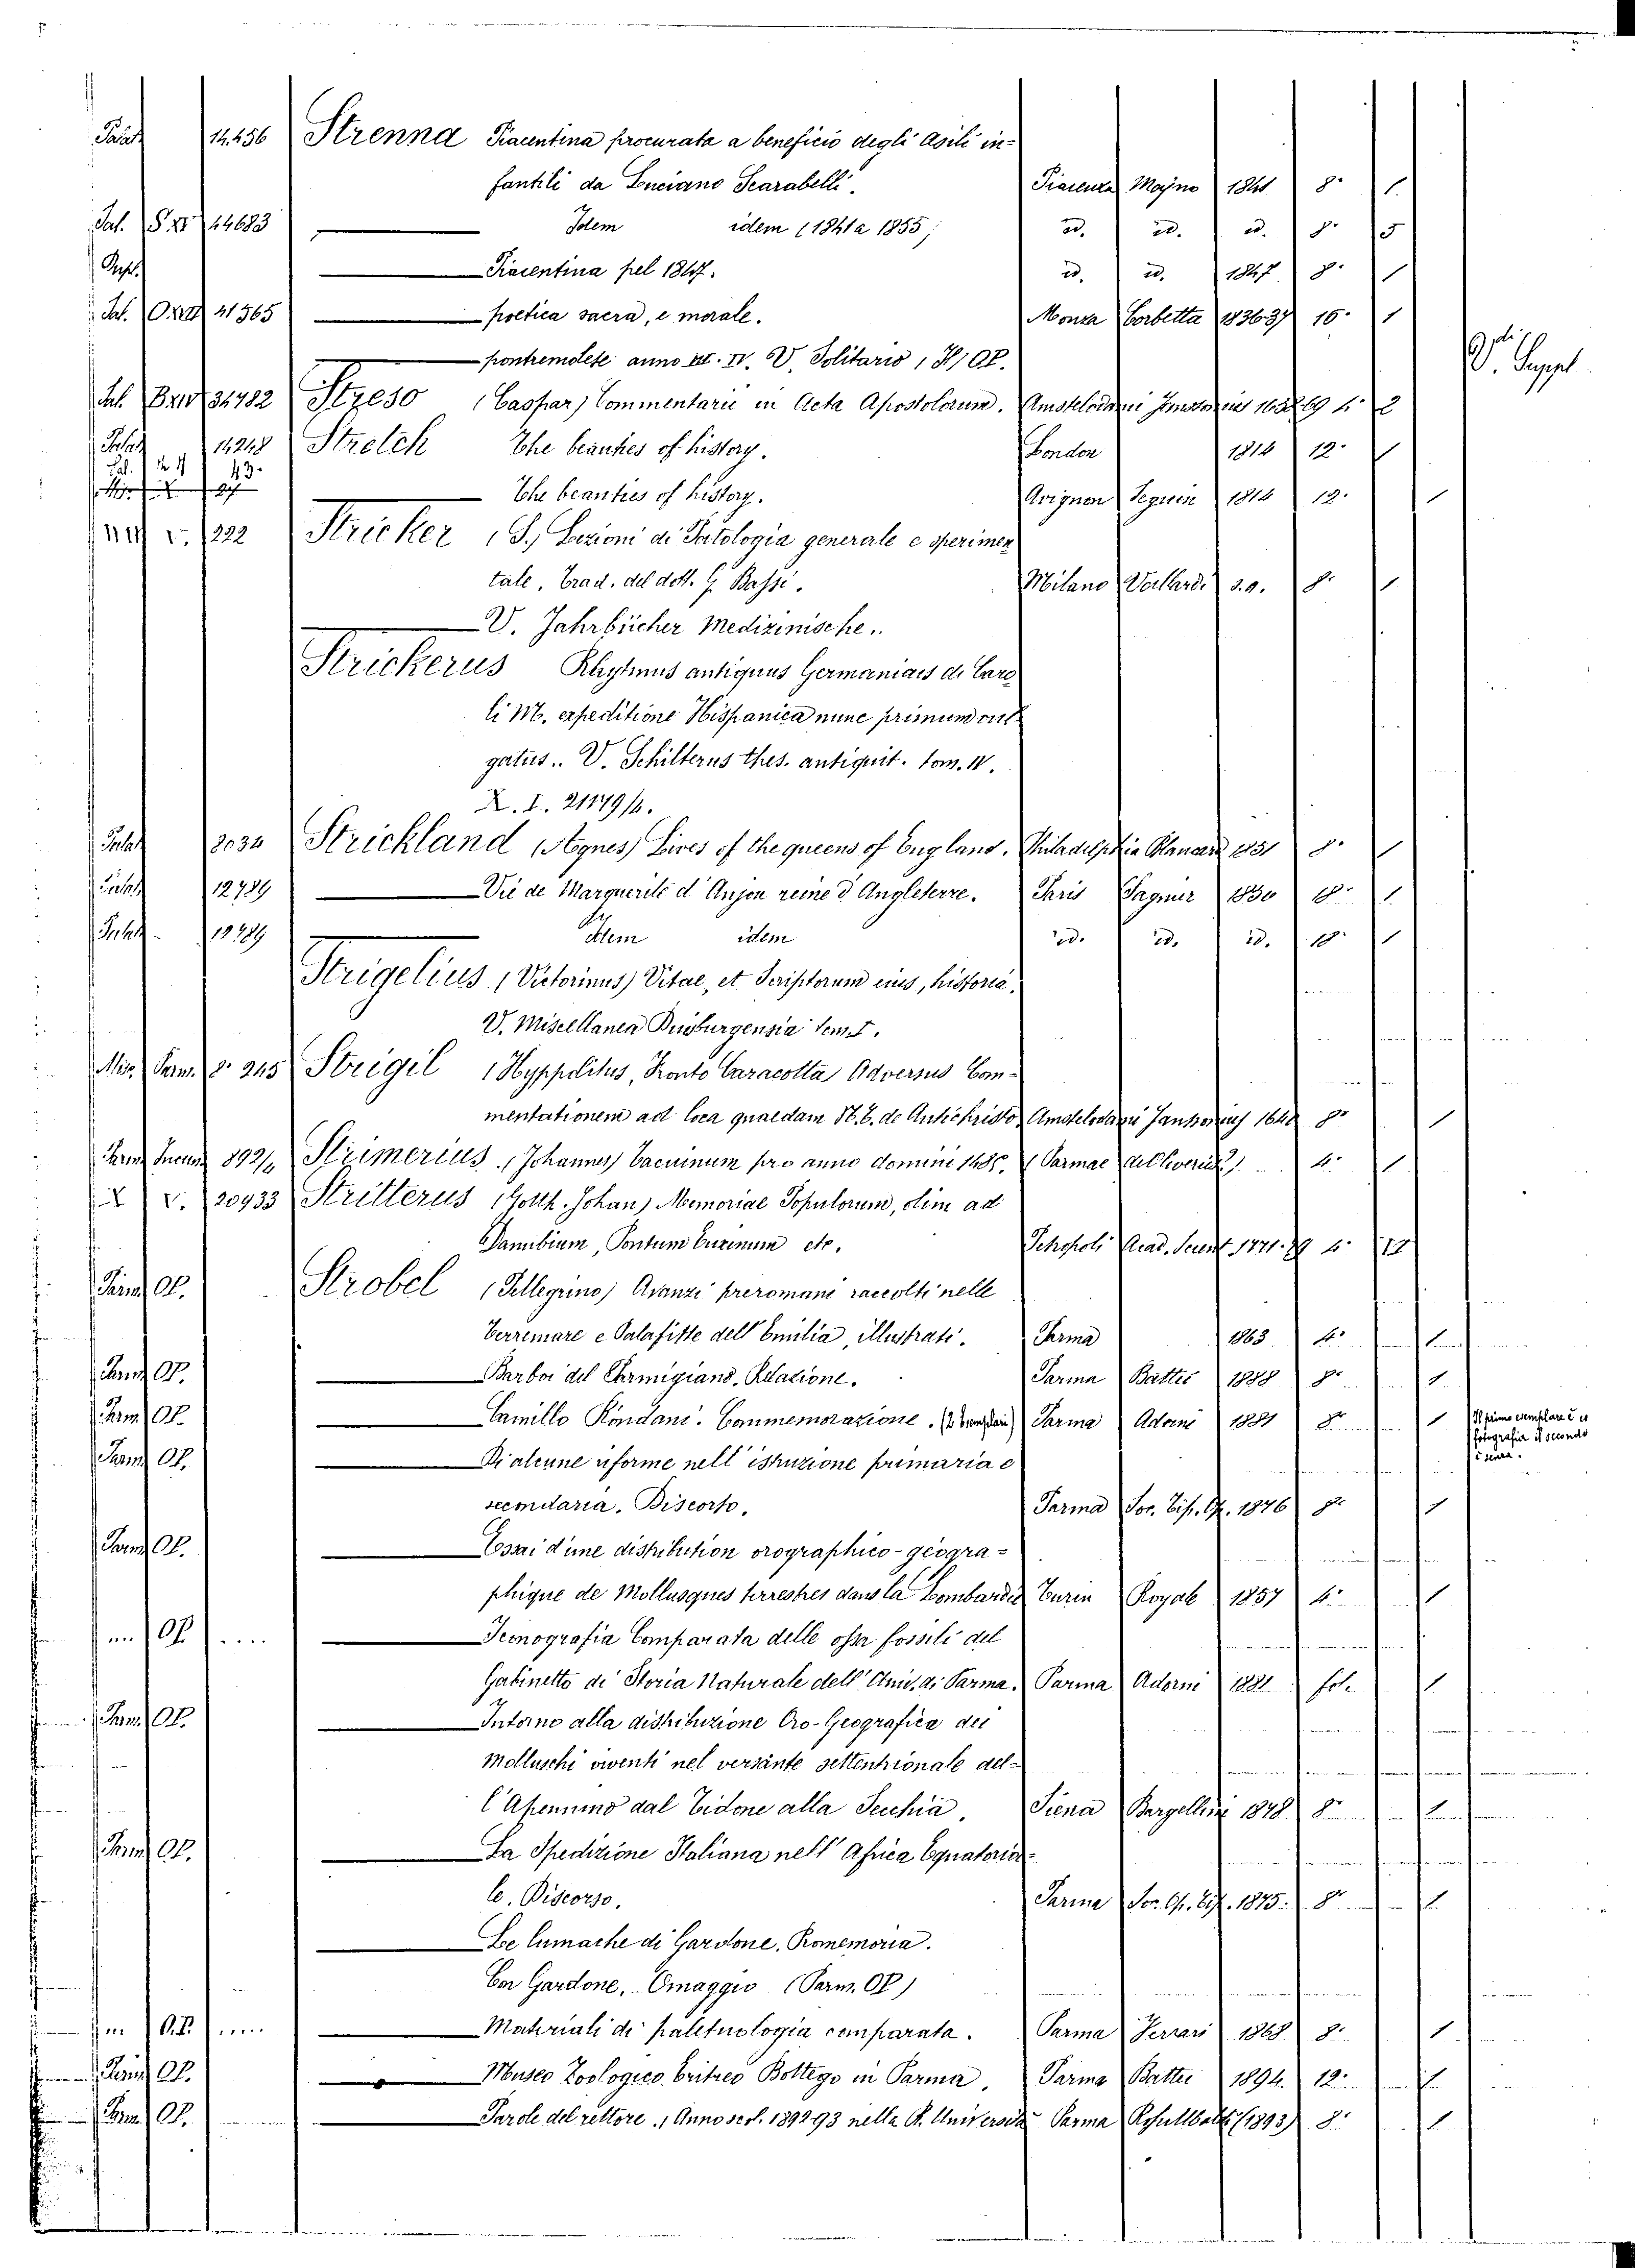 Palat 14.456 Strenna Piacentina procurata a beneficio degli Asili in-
fantili da Luciano Scarabelli. Piacenza Majno 1841 8° 1
Pal. 14683 Idem idem (1841 a 1855) id. id. id. 8° 5
Piacentina pel 1847. id. id. 1847 8° 1
Pal. 41565 poetica sacra, e morale. Monza Corbetta 1836-37 16° 1
pontremolese anno III. IV. V. Solitario
V. Suppl
Streso (Caspar) Commentarii in Acta Apostolorum. 4° 2
Palat 14248 Stretch The beauties of history. London 1814 12° 1
The beauties of history. Avignon Seguin 1814 12° 1
1222 Stricker (S.) Lezioni di Patologia generale e sperimen
tale. Trad. del dott. G. Bassi. Milano Vallardi s.a. 8° 1
V. Jahrbücher Medizinische.
Strickerus Rhytmus antiquus Germanicus de Caro
li M. expeditione Hispanica nunc primum vul
gatus.. V. Schilterus thes. antiquit. tom. IV.
X. I. 21179/4.
Palat 2034 Strickland (Agnes) Lives of the queens of England. 8° 1
Palat 12789 Vie de Marguerite d'Anjou reine d'Angleterre. Paris Gagnier 1850 18° 1
Palat 12789 Idem idem id. id. id. 18° 1
Strigelius (Victorinus) Vitae, et Scriptorum eius, historia.
V. Miscellanea Duisburgensia tom. I.
Misc. Parm. 8° 245 Strigil (Hyppolitus, Fronto Caracotta) Adversus Com-
mentationem ad loca quaedam N. T. de Antichristo Amstelodami 8° 1
Strimerius (Johannes) Vacuinum pro anno domini 1485. Parmae 4° 1
X V. 20933 Stritterus (Gotth. Johan) Memoriae Populorum, olim ad
Danubium, Pontum Euxinum etc. Petropoli Acad. Scient 1771-79 4°
Parm OP. Strobel (Pellegrino) Avanzi preromani raccolti nelle
Terremare e Palafitte dell'Emilia, illustrati. Parma 1863 4° 1
Parm OP. Barboi del Parmigiano. Relazione. Parma Battei 1888 8° 1
Parm OP. Camillo Rondani. Commemorazione. (2 Esemplari) Parma Adorni 1881 8° 1
Il primo esemplare è in
fotografia il secondo
è senza.
Parm OP. Di alcune riforme nell'istruzione primaria e
secondaria. Discorso. Parma Soc. Tip. Op. 1876 8° 1
Parm OP. Essai d'une distribution orographico-géogra-
phique de Mollusques terrestres dans la Lombardie Turin Royale 1857 4° 1
OP Iconografia Comparata delle ossa fossili del
Gabinetto di Storia Naturale dell'Univ. di Parma. Parma Adorni 1881 fol. 1
Parm OP. Intorno alla distribuzione Oro-Geografica dei
Molluschi viventi nel versante settentrionale del-
l'Apennino dal Tidone alla Secchia. Siena Bargellini 1878. 8° 1
Parm OP. La Spedizione Italiana nell'Africa Equatoria-
le. Discorso. Parma Soc. Op. Tip. 1875. 8° 1
Le lumache di Gardone. Promemoria.
Con Gardone. Omaggio (Parm. OP)
OP. Materiali di paletnologia comparata. Parma Ferrari 1868 8° 1
Parm OP. Museo Zoologico Eritreo Bottego in Parma. Parma Battei 1894. 12° 1
Parm OP. Parole del rettore. (Anno scol. 1892-93 nella R. Università Parma (1893) 8° 1